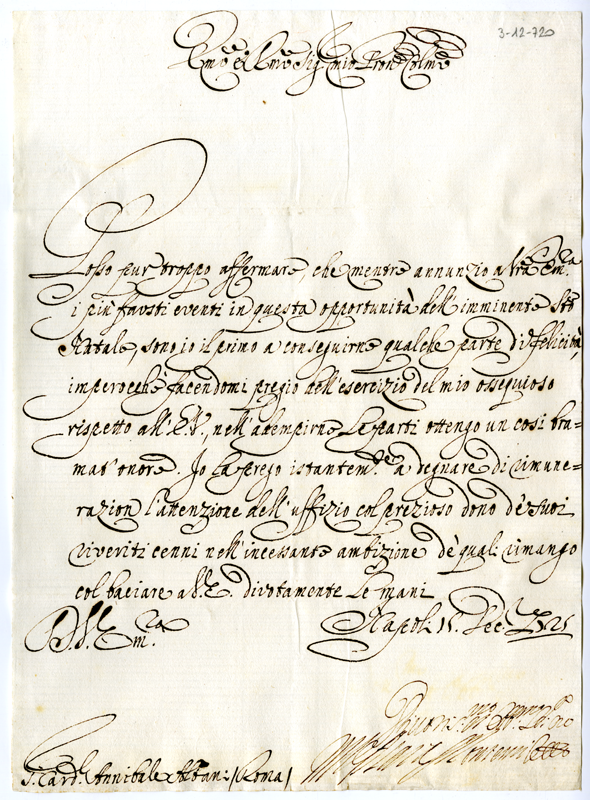 3-12-720
Em̃o e Rm̃o Sig.r mio Pron̄ Colm̃o
Posso pur troppo affermare, che mentre annunzio a Vr̃a Em.za
i più fausti eventi in questa opportunità dell'imminente Sto
Natale, sono io il primo a conseguirne qualche parte di felicità
imperocchè facendomi pregio dell'esercizio del mio ossequioso
rispetto all'E.V., nell'adempirne le parti ottengo un così bra=
mat'onore. Io la prego istantem.te a degnare di rimune=
razion l'attenzione dell'uffizio col prezioso dono de' suoi
riveriti cenni nell'incessante ambizione de' quali rimango
col baciare a V.E. divotamente le mani
D. V. Em.za
Napoli Dec.re
S. Card.l Annibale Albani (Roma)